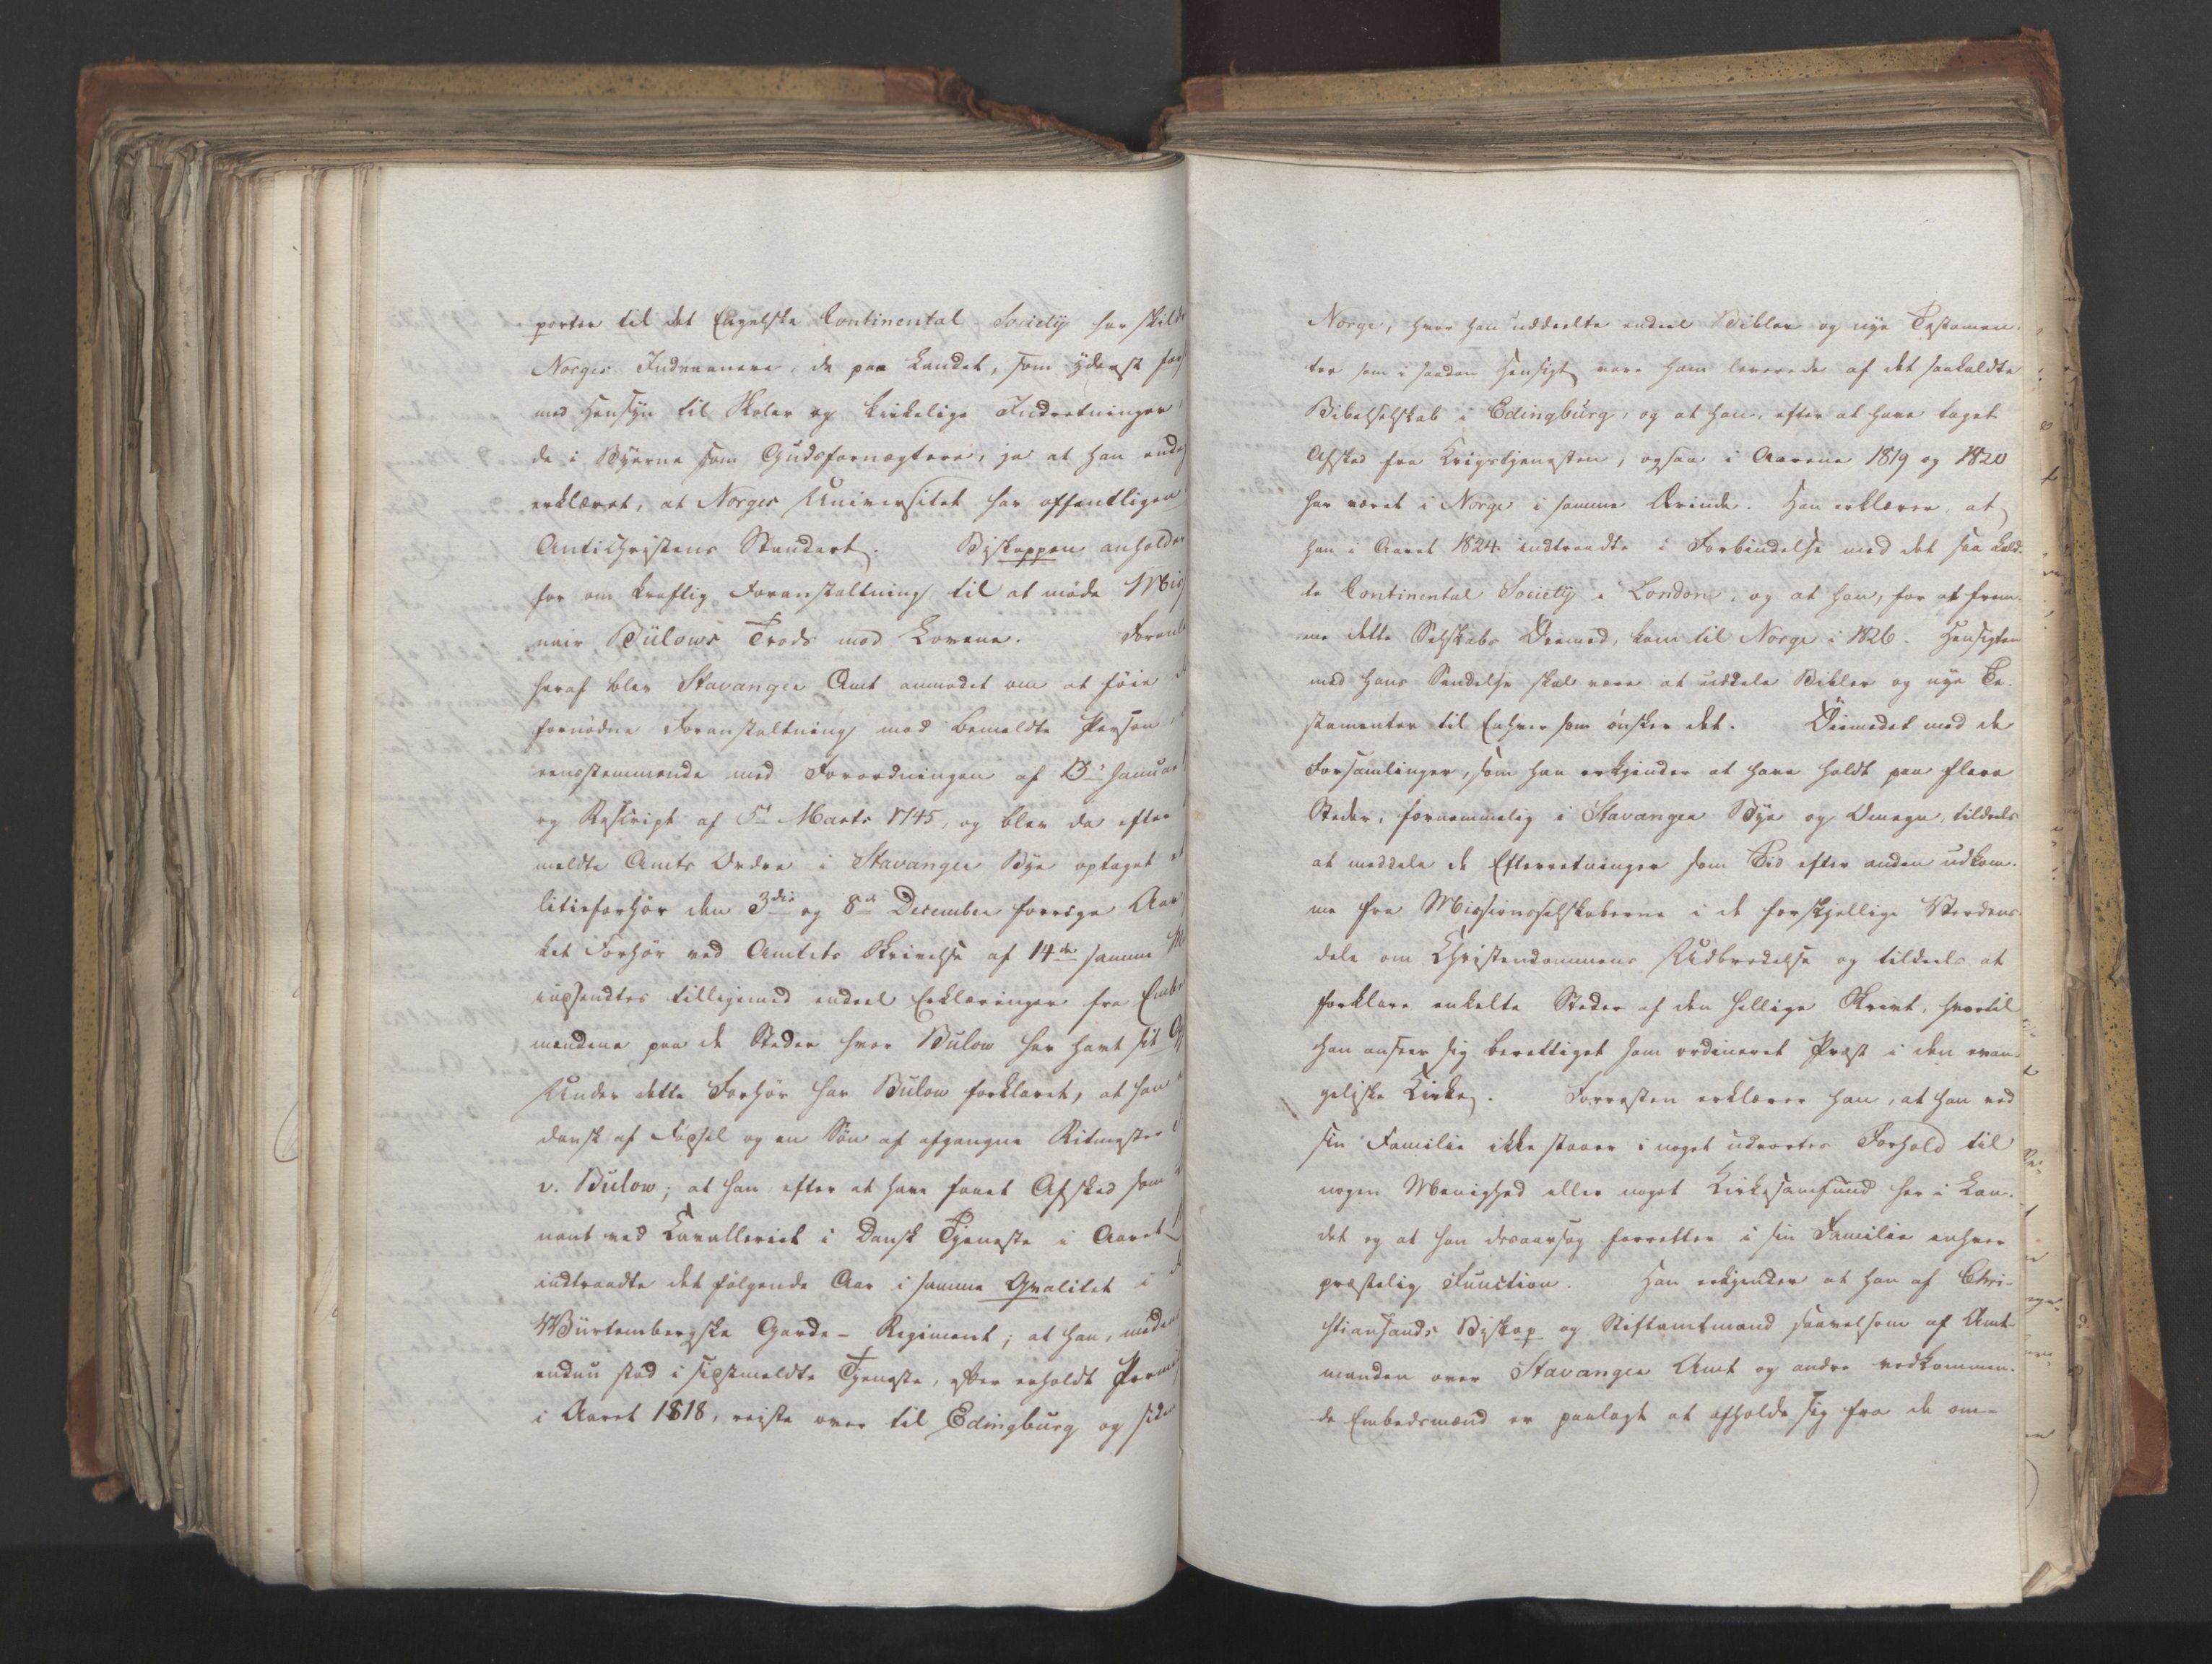 porter til det Engelske Continental Society har skild
Norges Indvaanere, de paa Landet, som yderst for
med Hensyn til Skoler og kirkelige Indretninger
de i Byerne som Gudsfornægtere, ja at han endog
erklæret, at Norges Universitet har offentligen
AntiChristens Standart. Biskoppen anholder
for om kraftig Foranstaltning til at møde Mis
nair Bülows Trods mod Lovene. Foranle
heraf blev Stavanger Amt anmodet om at føie
fornødne Foranstaltning mod bemeldte Person
eensstemmende med Forordningen af 13 Januar
og Rescript af 5t Marts 1745, og blev da efter
meldte Amts Ordre i Stavanger Bye optaget et
litieforhør den 3die og 8de December forrige Aar
ket Forhør ved Amtets Skrivelse af 14de samme M
indsendtes tilligemed endeel Erklæringer fra Emb
mændene paa de Steder hvor Bülow har havt sit O
Under dette Forhør har Bülow forklaret, at han
dansk af Fødsel og en Søn af afgangne Ritmester
v. Bülow; at han efter at have faaet Afsked som
nant ved Cavalleriet i Dansk Tjeneste i Aaret
indtraadte det følgende Aar i samme Qvalitet i
Würtembergske Garde-Regiment; at han, meden
endnu stod i sidstmeldte Tjeneste, efter erholdt Permis
i Aaret 1818, reiste over til Edingburg og side
Norge, hvor han uddeelte endeel Bibler og nye Testamen-
ter som i saadan Hensigt vare ham leverede af det saakaldte
Bibelselskab i Edingburg, og at han, efter at have taget
Afsked fra Krigstjenesten, ogsaa i Aarene 1819 og 1820
har været i Norge i samme Ærinde. Han erklærer, at
han i Aaret 1824 indtraadte i Forbindelse med det saa kald-
te Continental Society i London, og at han, for at frem-
me dette Selskabs Øiemed, kom til Norge i 1826. Hensigten
med hans Sendelse skal være at uddele Bibler og nye Te-
stamenter til Enhver som ønsker det. Øiemedet med de
Forsamlinger, som han erkjender at have holdt paa flere
Steder, fornemmelig i Stavanger Bye og Omegn, tildeels
at meddele de Efterretninger som Tid efter anden udkom-
me fra Missionsselskaberne i de forskjellige Verdens-
dele om Christendommens Udbredelse og tildeels at
forklare enkelte Steder af den hellige Skrivt, hvortil
han anseer sig berettiget som ordineret Præst i den evan-
geliske Kirke. Forresten erklærer han, at han ved
sin Familie ikke staaer i noget udvortes Forhold til
nogen Menighed eller noget Kirkesamfund her i Lan-
det og at han desaarsag forretter i sin Familie enhver
præstelig Function. Han erkjender at han af Chri-
stiansands Biskop og Stiftamtmand saavelsom af Amt-
manden over Stavanger Amt og andre vedkommen-
de Embedsmænd er paalagt at afholde sig fra de om-